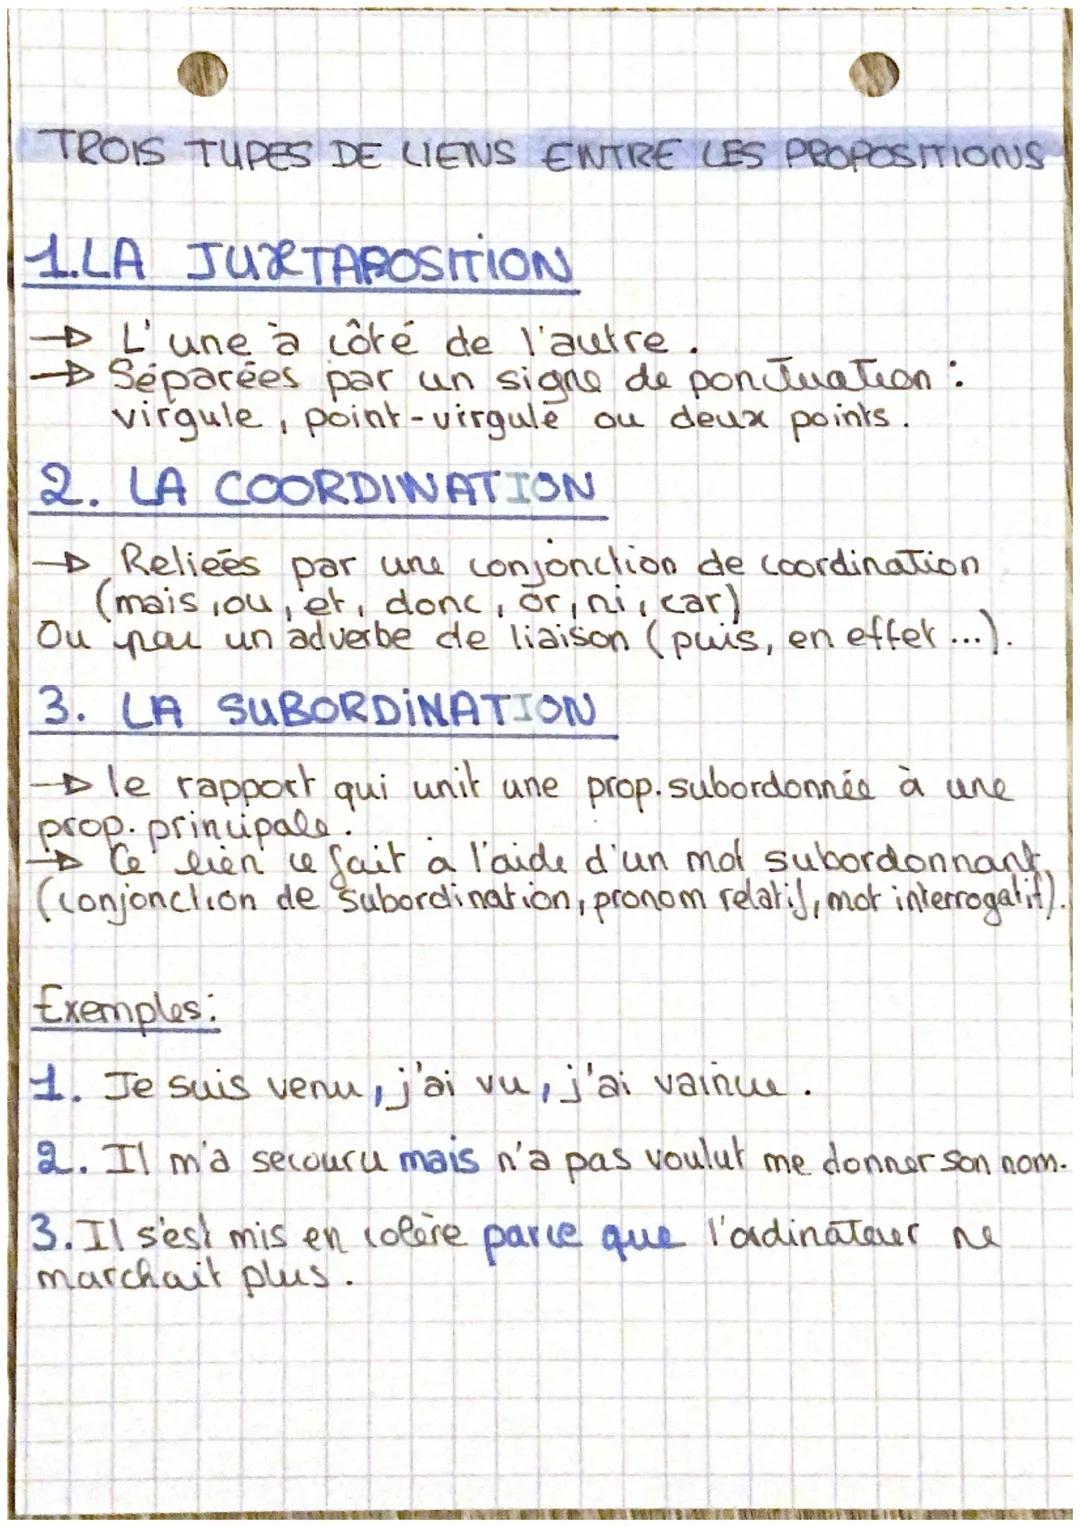 TROIS TYPES DE LIENS ENTRE LES PROPOSITIONS
1. LA JUXTAPOSITION
→ L'une à côté de l'autre.
→ Séparées par un signe de ponctuation :
virgule, point-virgule ou deux points.
2. LA COORDINATION
→ Reliées par une conjonction de coordination
(mais, ou, et, donc, or, ni, car)
Ou par un adverbe de liaison (puis, en effet ...).
3. LA SUBORDINATION
→ le rapport qui unit une prop. subordonnée à une
prop. principale.
→ Ce lien ce fait à l'aide d'un mot subordonnant
(conjonction de subordination, pronom relatif, mot interrogatif).
Exemples:
1. Je suis venu, j'ai vu, j'ai vaincue.
2. Il m'a secouru mais n'a pas voulut me donner son nom.
3. Il s'est mis en colère parce que l'ordinateur ne
marchait plus.